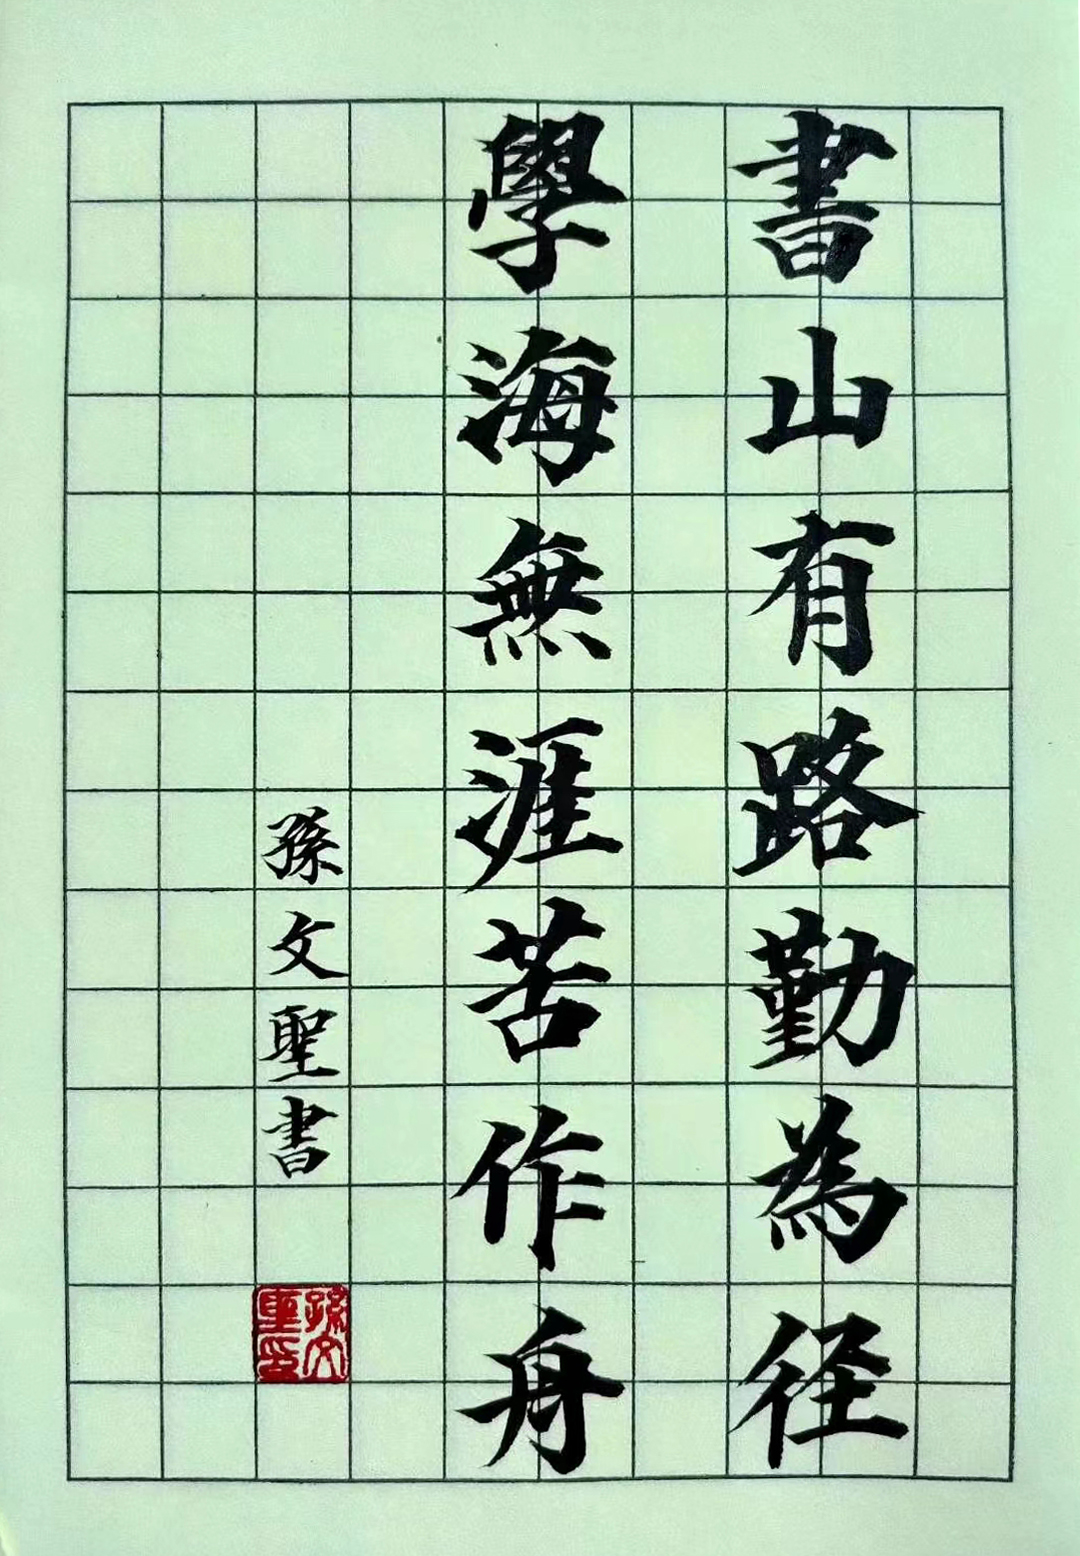 書山有路勤為径
學海無涯苦作舟
孫文聖書
孫文聖印